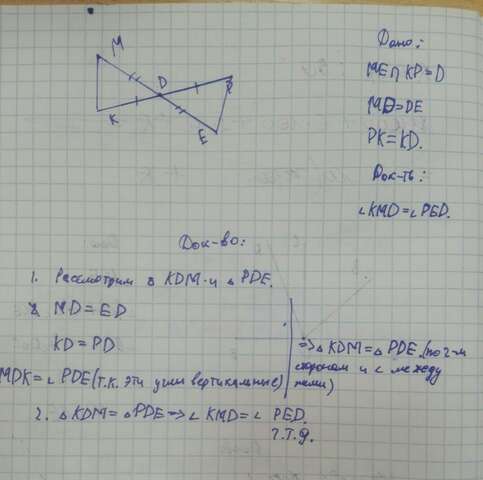 M
D
P
K
E
Дано:
ME∩KP=D
MD=DE
PK=KD.
Док-ть:
∠KMD=∠PED.
Док-во:
1. Рассмотрим △ KDM и △ PDE.
MD=ED
KD=PD
MDK=∠PDE(т.к. эти углы вертикальные)
=>△KDM=△PDE.(по 2-м
сторонам и ∠ между
ними)
2. △KDM=△PDE=>∠KMD=∠PED.
ч.т.д.